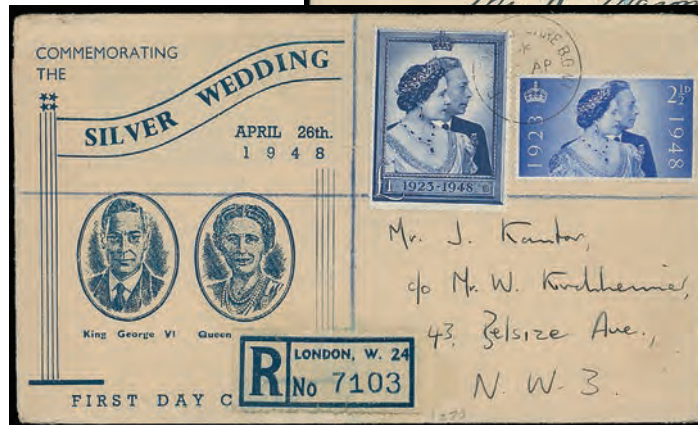 COMMEMORATING
THE
SILVER WEDDING
APRIL 26th.
1948
King George VI Queen
FIRST DAY C
R
LONDON, W. 24
No 7103
£1 1923-1948
AP
1923
2½D
1948
Mr. J. Kantor,
c/o Mr. W. Kirchheimer,
43, Belsize Ave.,
N. W. 3.